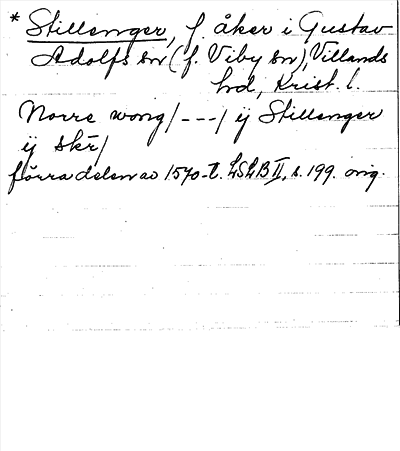 * Stillenger, f. åker i Gustav
Adolfs sn (f. Viby sn), Villands
hd, Krist. l.
Norre wong / - - - / ij Stillenger
ij skr /
förra delen av 1570-t. LSLB II, s. 199. orig.